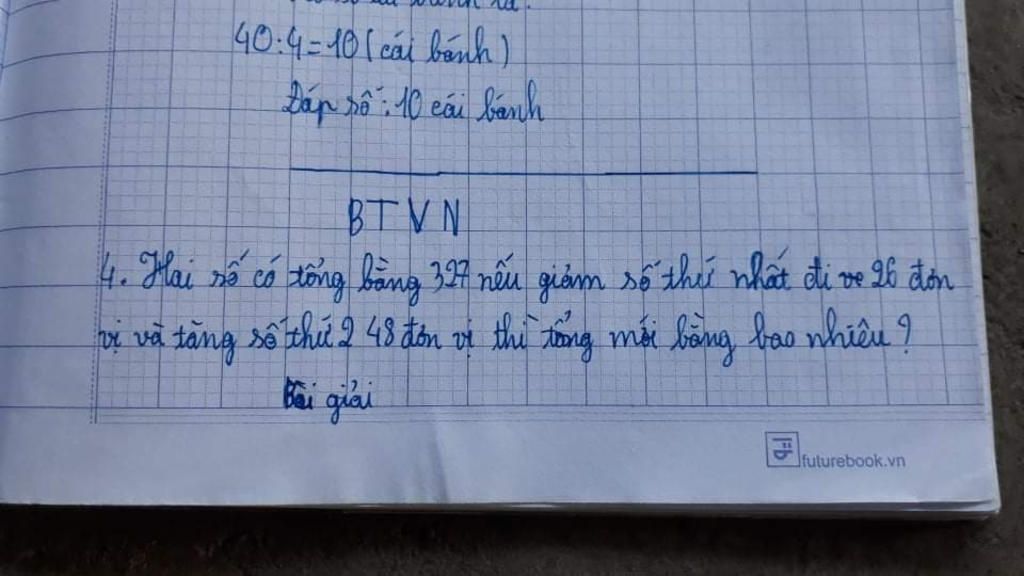 40:4=10 (cái bánh)
Đáp số: 10 cái bánh
BTVN
4. Hai số có tổng bằng 327 nếu giảm số thứ nhất đi 26 đơn
vị và tăng số thứ 2 48 đơn vị thì tổng mới bằng bao nhiêu?
Bài giải
futurebook.vn